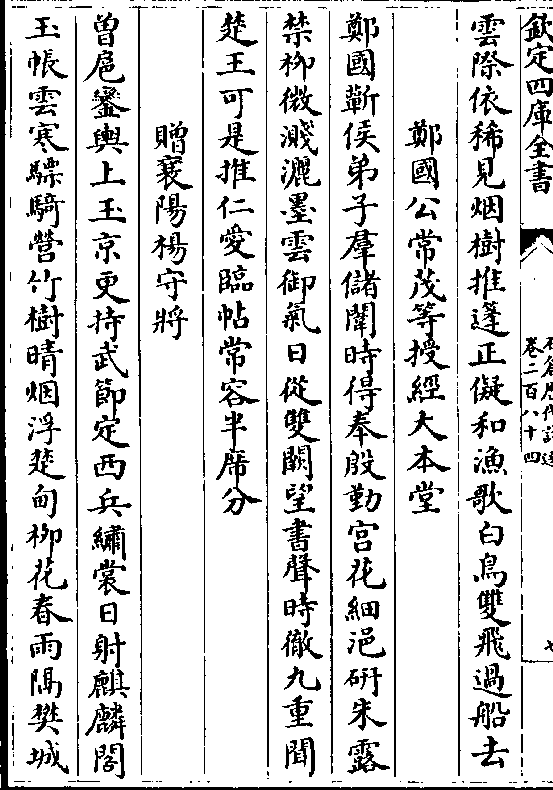 欽定四庫全書
卷二百八十四
雲際依稀見烟樹推蓬正儗和漁歌白鳥雙飛過船去
鄭國公常茂等授經大本堂
鄭國蘄侯弟子羣儲闈時得奉殷勤宫花細浥研朱露
禁栁微濺灑墨雲御氣日從雙闕望書聲時徹九重聞
楚王可是推仁愛臨帖常容半席分
贈襄陽楊守將
曾扈鑾輿上玉京更持武節定西兵繡裳日射麒麟閣
玉帳雲寒驃騎營竹樹晴烟浮楚甸栁花春雨隔樊城